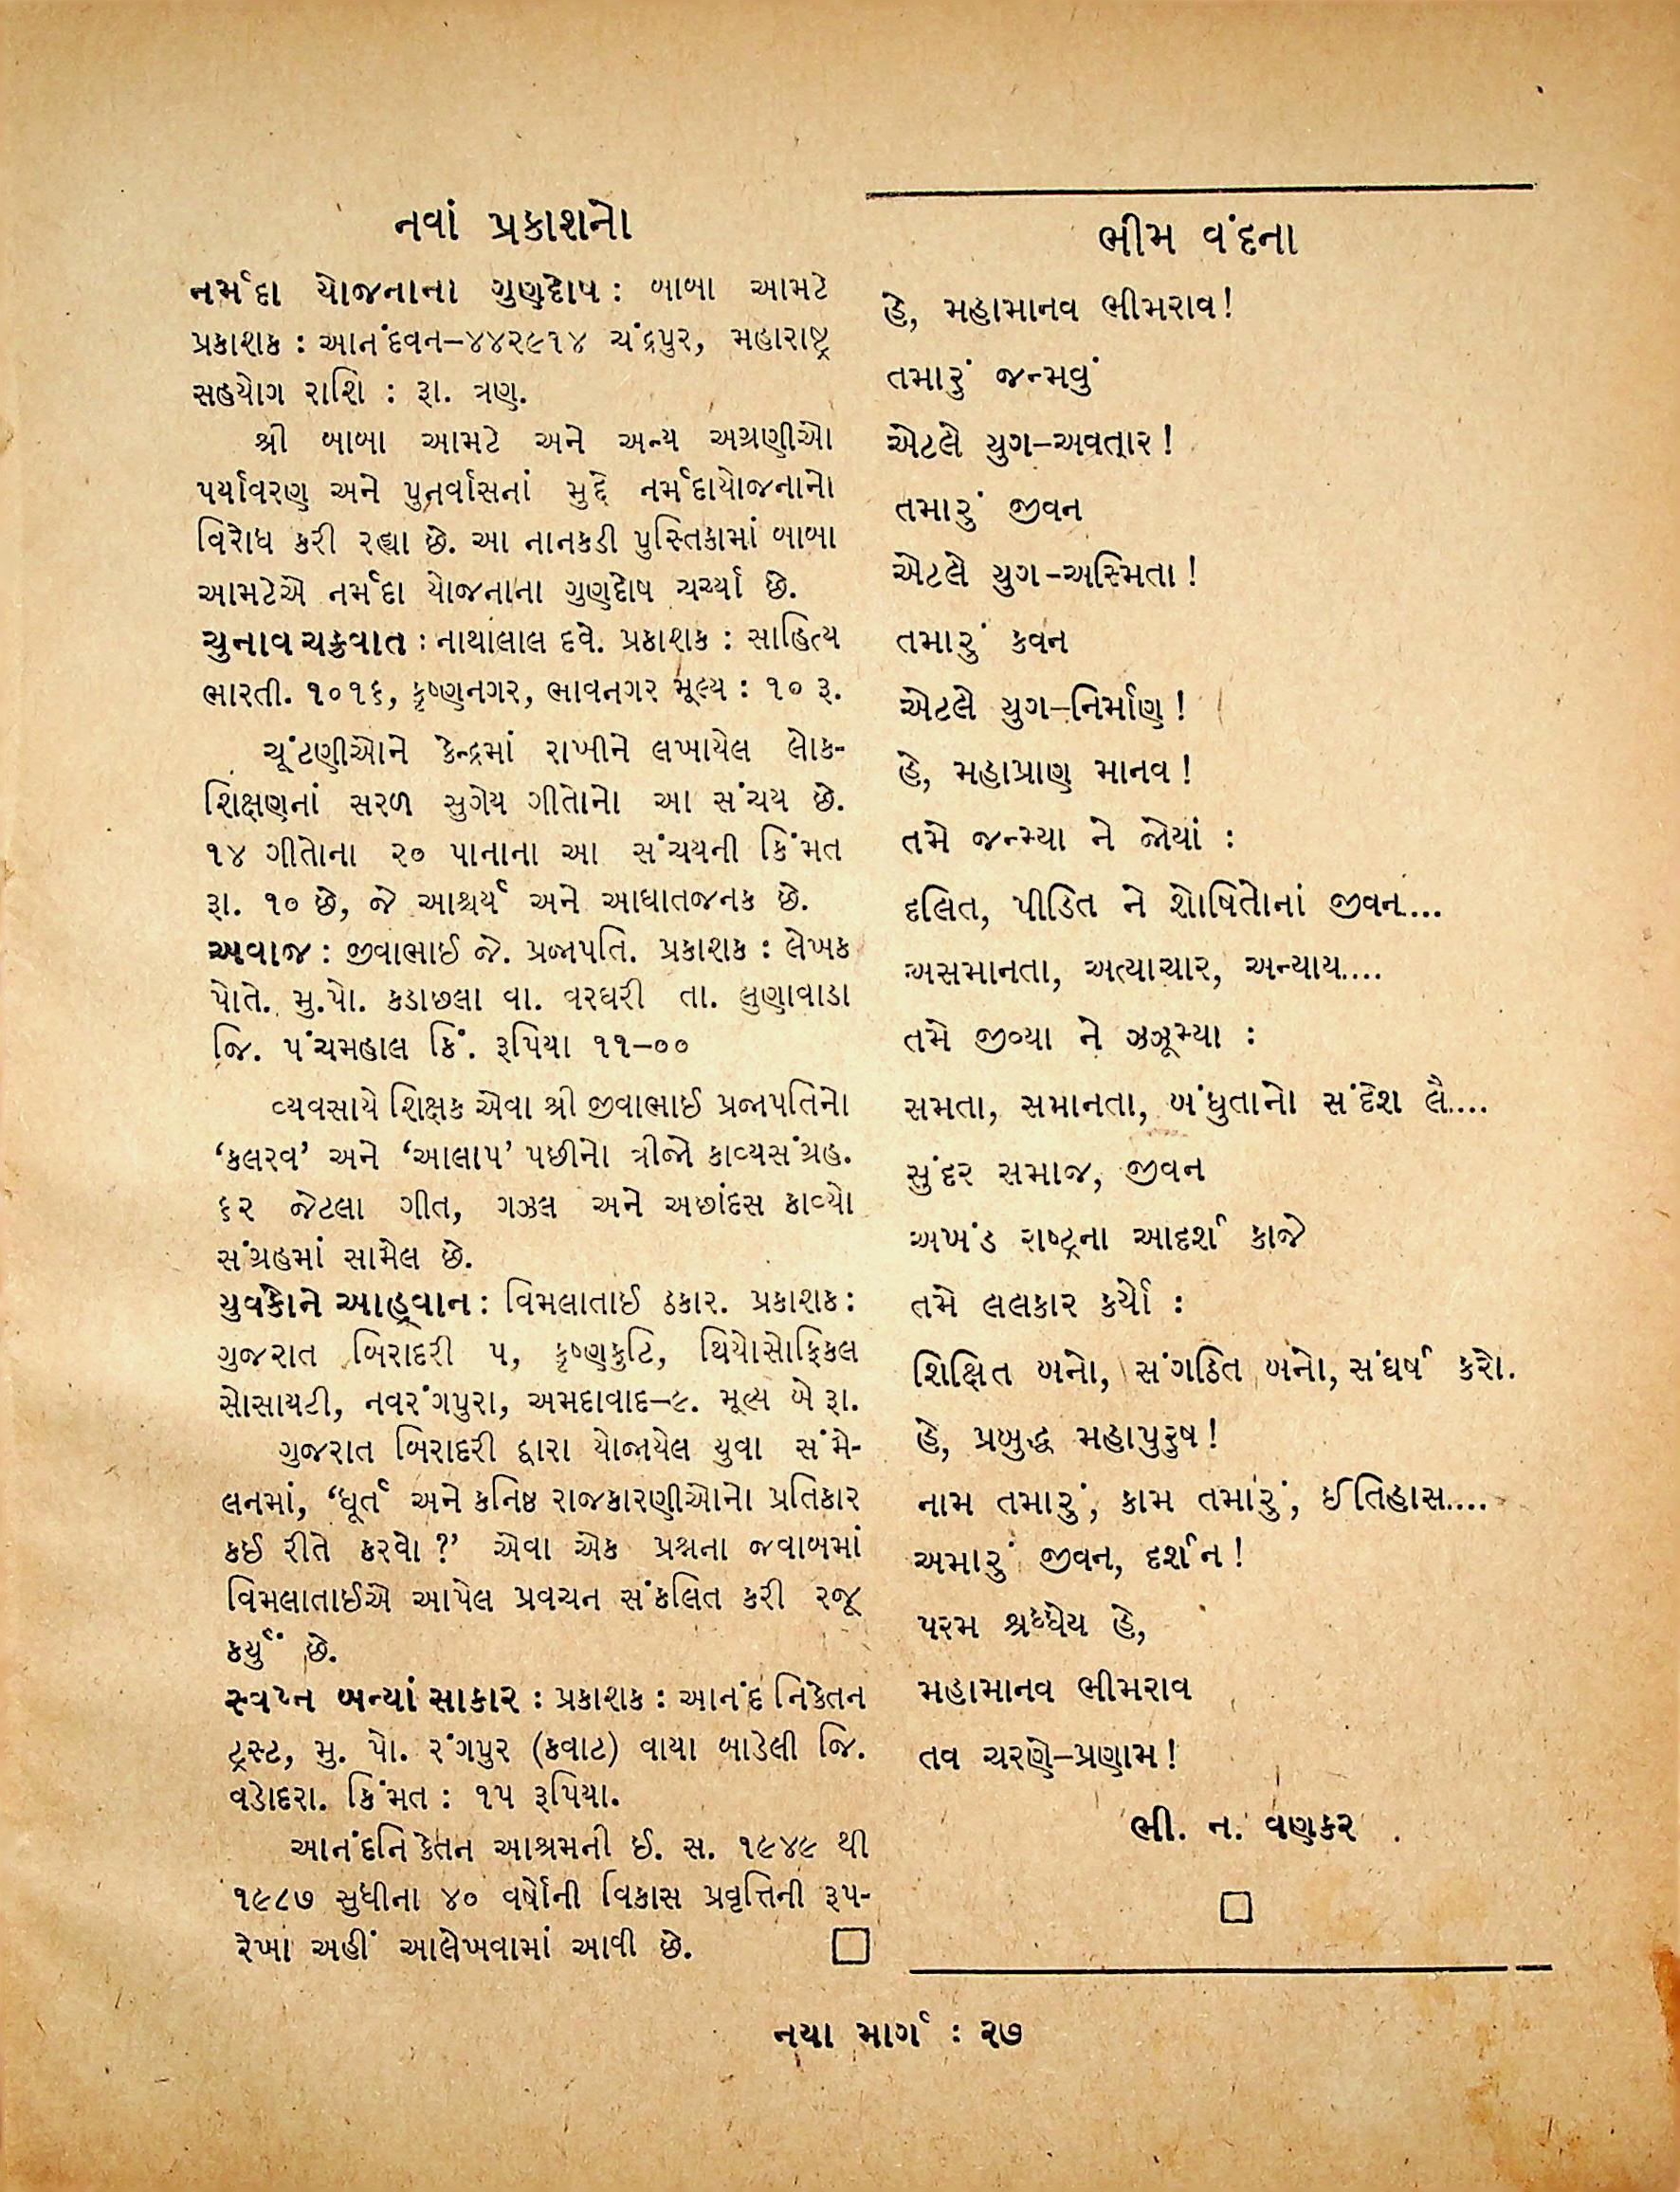 નવાં પ્રકાશનો
નર્મદા યોજનાના ગુણદોષ : બાબા આમટે
પ્રકાશક : આનંદવન–૪૪૨૯૧૪ ચંદ્રપુર, મહારાષ્ટ્ર
સહયોગ રાશિ : રૂા. ત્રણ.
શ્રી બાબા આમટે અને અન્ય અગ્રણીઓ
પર્યાવરણ અને પુનર્વાસનાં મુદ્દે નર્મદાયોજનાનો
વિરોધ કરી રહ્યા છે. આ નાનકડી પુસ્તિકામાં બાબા
આમટેએ નર્મદા યોજનાના ગુણદોષ ચર્ચ્યા છે.
ચુનાવ ચક્રવાત : નાથાલાલ દવે. પ્રકાશક : સાહિત્ય
ભારતી. ૧૦૧૬, કૃષ્ણનગર, ભાવનગર મૂલ્ય : ૧૦ રૂ.
ચૂંટણીઓને કેન્દ્રમાં રાખીને લખાયેલ લોક-
શિક્ષણનાં સરળ સુગેય ગીતોનો આ સંચય છે.
૧૪ ગીતોના ૨૦ પાનાના આ સંચયની કિંમત
રૂા. ૧૦ છે, જે આશ્ચર્ય અને આઘાતજનક છે.
અવાજ : જીવાભાઈ જે. પ્રજાપતિ. પ્રકાશક : લેખક
પોતે. મુ.પો. કડાછલા વા. વરધરી તા. લુણાવાડા
જિ. પંચમહાલ કિં. રૂપિયા ૧૧–૦૦
વ્યવસાયે શિક્ષક એવા શ્રી જીવાભાઈ પ્રજાપતિનો
‘કલરવ’ અને ‘આલાપ’ પછીનો ત્રીજો કાવ્યસંગ્રહ.
૬૨ જેટલા ગીત, ગઝલ અને અછાંદસ કાવ્યો
સંગ્રહમાં સામેલ છે.
યુવકોને આહ્વાન : વિમલાતાઈ ઠકાર. પ્રકાશક :
ગુજરાત બિરાદરી ૫, કૃષ્ણકુટિ, થિયોસોફિકલ
સોસાયટી, નવરંગપુરા, અમદાવાદ–૯. મૂલ્ય બે રૂા.
ગુજરાત બિરાદરી દ્વારા યોજાયેલ યુવા સંમે-
લનમાં, ‘ધૂર્ત અને કનિષ્ઠ રાજકારણીઓનો પ્રતિકાર
કઈ રીતે કરવો ?’ એવા એક પ્રશ્નના જવાબમાં
વિમલાતાઈએ આપેલ પ્રવચન સંકલિત કરી રજૂ
કર્યું છે.
સ્વપ્ન બન્યાં સાકાર : પ્રકાશક : આનંદ નિકેતન
ટ્રસ્ટ, મુ. પો. રંગપુર (કવાટ) વાયા બાડેલી જિ.
વડોદરા. કિંમત : ૧૫ રૂપિયા.
આનંદનિકેતન આશ્રમની ઈ. સ. ૧૯૪૯ થી
૧૯૮૭ સુધીના ૪૦ વર્ષોની વિકાસ પ્રવૃત્તિની રૂપ-
રેખા અહીં આલેખવામાં આવી છે.
ભીમ વંદના
હે, મહામાનવ ભીમરાવ !
તમારું જન્મવું
એટલે યુગ–અવતાર !
તમારું જીવન
એટલે યુગ-અસ્મિતા !
તમારું કવન
એટલે યુગ–નિર્માણ !
હે, મહાપ્રાણ માનવ !
તમે જન્મ્યા ને જોયાં :
દલિત, પીડિત ને શોષિતોનાં જીવન....
અસમાનતા, અત્યાચાર, અન્યાય....
તમે જીવ્યા ને ઝઝૂમ્યા :
સમતા, સમાનતા, બંધુતાનો સંદેશ લૈ....
સુંદર સમાજ, જીવન
અખંડ રાષ્ટ્રના આદર્શ કાજે
તમે લલકાર કર્યો :
શિક્ષિત બનો, સંગઠિત બનો, સંઘર્ષ કરો.
હે, પ્રબુદ્ધ મહાપુરુષ !
નામ તમારું, કામ તમારું, ઈતિહાસ....
અમારું જીવન, દર્શન !
પરમ શ્રધ્ધેય હે,
મહામાનવ ભીમરાવ
તવ ચરણે–પ્રણામ !
ભી. ન. વણકર
નયા માર્ગ : ૨૭